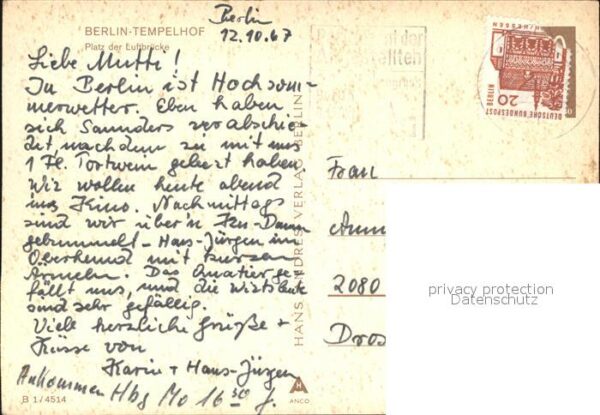 BERLIN-TEMPELHOF
Platz der Luftbrücke
Berlin
12.10.67
Liebe Mutti!
In Berlin ist Hochsom-
merwetter. Eben haben
sich Saunders verabschie-
det nachdem zu mit uns
1 Fl. Portwein geleert haben.
Wir wollen heute abend
ins Kino. Nachmittags
sind wir über'n Ku-Damm
gebummelt - Hans-Jürgen im
Oberhemd mit kurzen
Ärmeln. Das Quartier ge-
fällt uns, und die Wirtsleute
sind sehr gefällig.
Viele herzliche Grüße +
Küsse von
Karin + Hans-Jürgen
Ankommen Hbg Mo 16 30
B 1/4514
HANS ANDRES VERLAG BERLIN
H
ANCO
HESSEN
20
DEUTSCHE BUNDESPOST
BERLIN
Frau
2080
privacy protection
Datenschutz